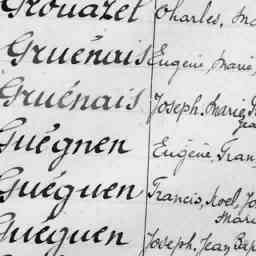 Grouazel Charles,
Gruénais Eugène, Marie,
Gruénais Joseph, Marie,
Guégnen Eugène,
Guéguen Francis, Noel,
Marie
Guéguen Joseph, Jean